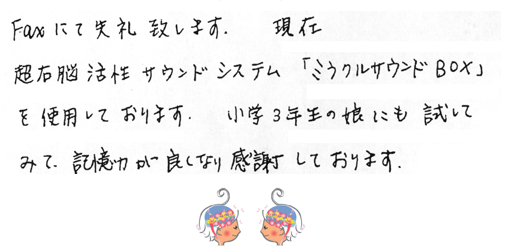 Faxにて失礼致します. 現在
超右脳活性サウンドシステム「ミラクルサウンドBOX」
を使用しております. 小学3年生の娘にも試して
みて、記憶力が良くなり感謝しております.